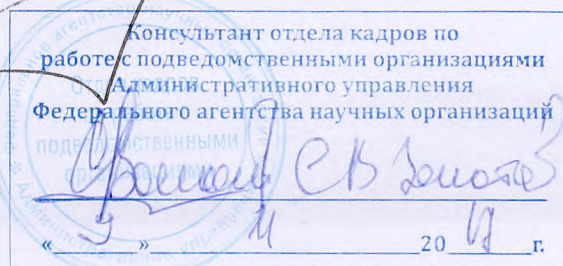 Консультант отдела кадров по
работе с подведомственными организациями
Административного управления
Федерального агентства научных организаций
С В
« 9 » 11 20 17 г.